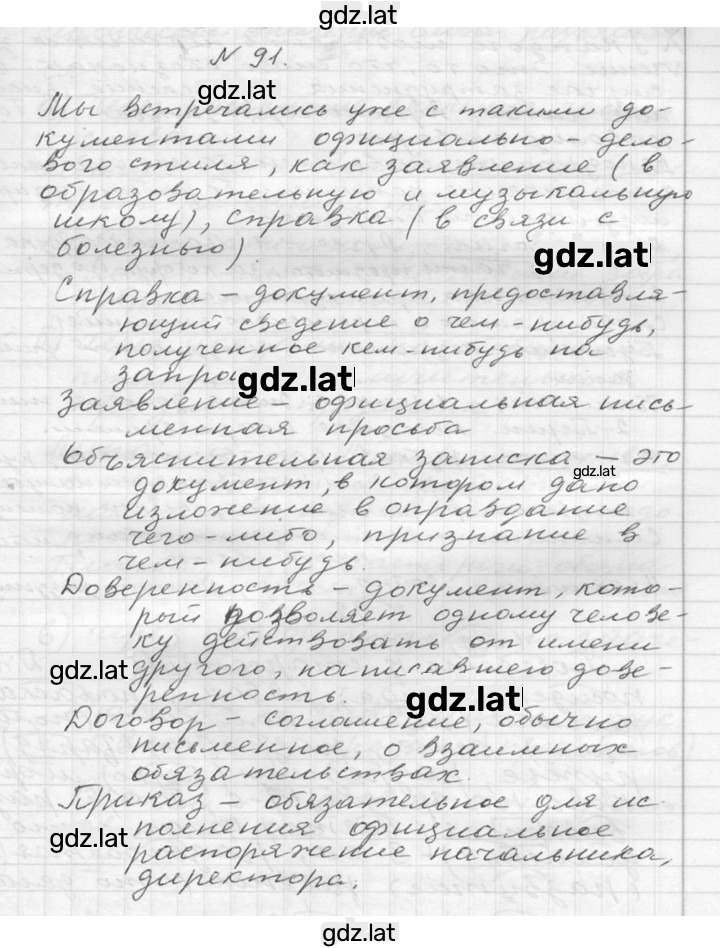 gdz.lat
N 91.
gdz.lat
Мы встречались уже с такими до-
кументами официально-дело-
вого стиля, как заявление (в
образовательную и музыкальную
школу), справка (в связи с
болезнью)
gdz.lat
Справка – документ, предоставля-
ющий сведение о чем-нибудь,
полученное кем-нибудь по
запро
gdz.lat
Заявление – официальная пись-
менная просьба
Объяснительная записка – это
gdz.lat
документ, в котором дано
изложение в оправдание
чего-либо, признание в
чем-нибудь.
Доверенность – документ, кото-
рый позволяет одному челове-
ку действовать от имени
gdz.lat
другого, написавшего дове-
ренность.
gdz.lat
Договор – соглашение, обычно
письменное, о взаимных
обязательствах.
Приказ – обязательное для ис-
полнения официальное
gdz.lat
распоряжение начальника,
директора.
gdz.lat